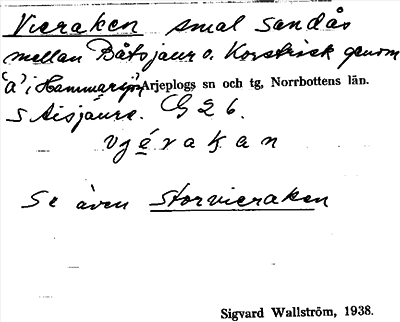 Vieraken smal sandås
mellan Båtsjaur o. Korsträsk genom
"a" i Hammarsjön Arjeplogs sn och tg, Norrbottens län.
S Aisjaure. G 26.
vjérakan
Se även Storvieraken
Sigvard Wallström, 1938.